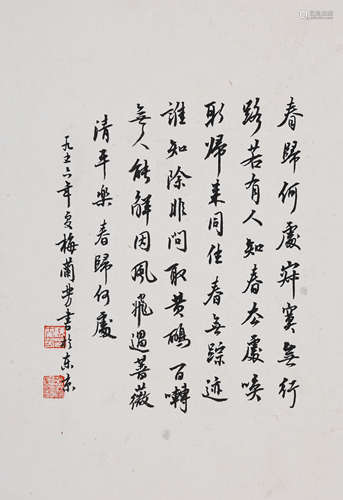 春歸何處寂寞無行
路若有人知春去處喚
取歸來同住春無踪迹
誰知除非問取黃鸝百囀
無人能解因風飛過薔薇
清平樂春歸何處
一九五六年夏梅蘭芳書於東京